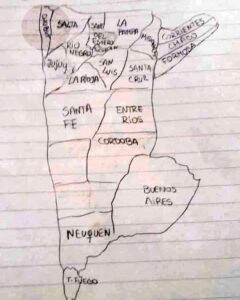 SALTA
LA
PAMPA
RIO
NEGRO
SAN
LUIS
SANTA
CRUZ
CORRIENTES
CHACO
FORMOSA
JUJUY
LA RIOJA
SANTA
FE
ENTRE
RIOS
CORDOBA
BUENOS
AIRES
NEUQUEN
T. FUEGO